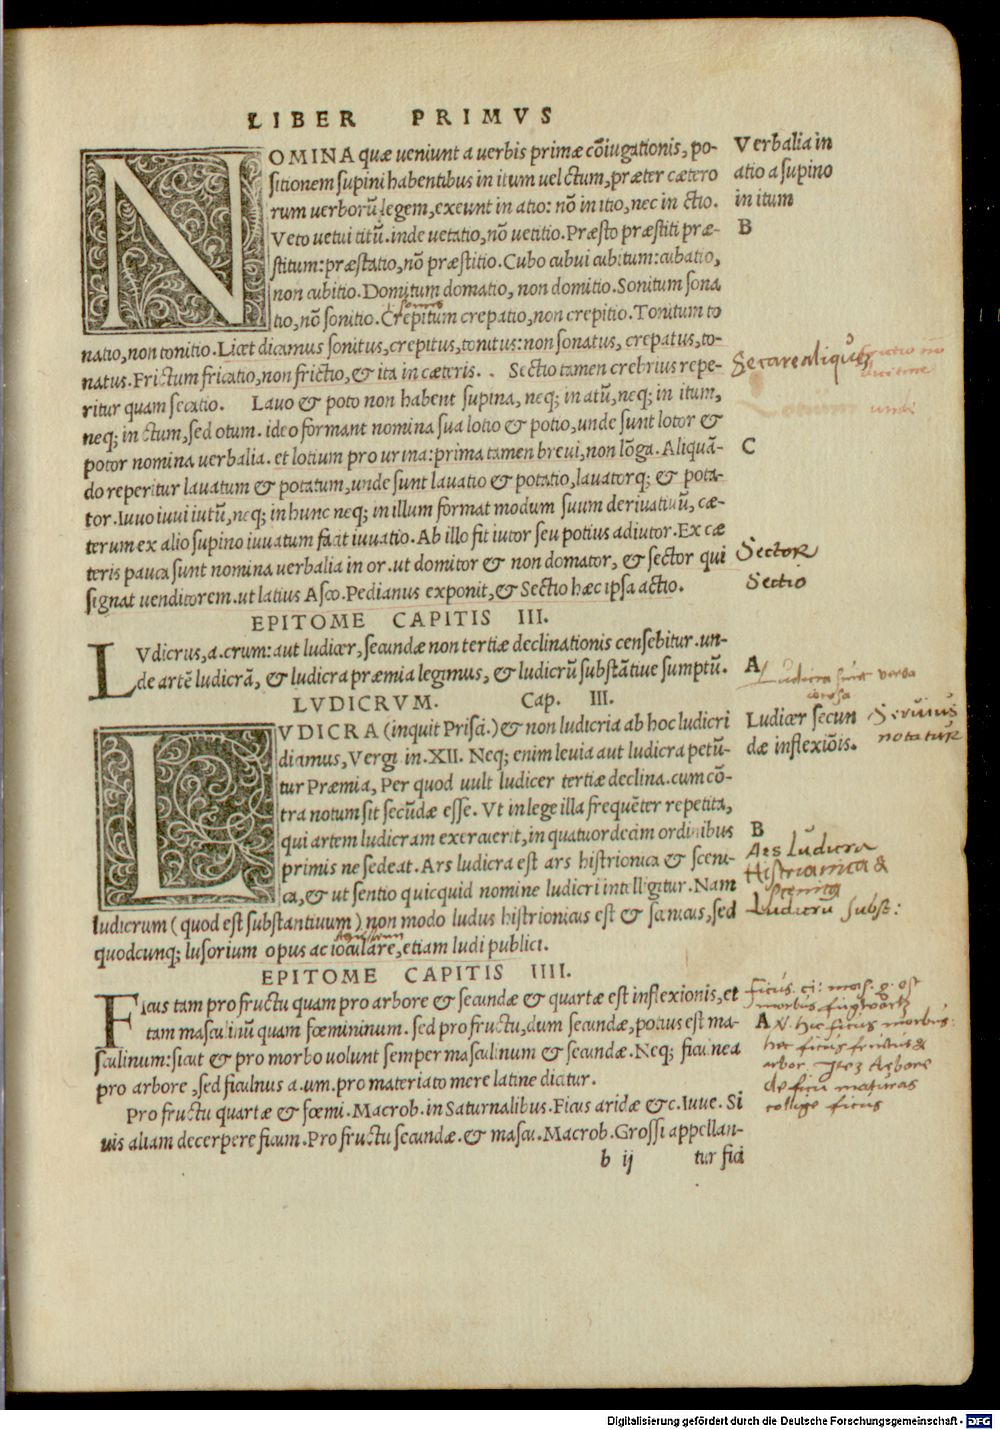 LIBER PRIMVS
NOMINA quæ ueniunt a uerbis primæ cõiugationis, po-
sitionem supini habentibus in itum uel ctum, præter cætero
rum uerborũ legem, exeunt in atio: nõ in itio, nec in ctio.
Veto uetui titũ. inde uetatio, nõ uetitio. Præsto præstiti præ-
stitum: præstatio, nõ præstitio. Cubo cubui cubitum: cubatio,
non cubitio. Domitum domatio, non domitio. Sonitum sona
tio, nõ sonitio. Crepitum crepatio, non crepitio. Tonitum to
natio, non tonitio. Licet dicamus sonitus, crepitus, tonitus: non sonatus, crepatus, to-
natus. Frictum fricatio, non frictio, & ita in cæteris. . Sectio tamen crebrius repe-
ritur quam secatio. Lauo & poto non habent supina, neq; in atũ, neq; in itum,
neq; in ctum, sed otum. ideo formant nomina sua lotio & potio, unde sunt lotor &
potor nomina uerbalia. et lotium pro urina: prima tamen breui, non lõga. Aliquã-
do reperitur lauatum & potatum, unde sunt lauatio & potatio, lauatorq; & pota-
tor. Iuuo iuui iutũ, neq; in hunc neq; in illum format modum suum deriuatiuũ, cæ-
terum ex alio supino iuuatum facit iuuatio. Ab illo fit iutor seu potius adiutor. Ex cæ
teris pauca sunt nomina uerbalia in or. ut domitor & non domator, & sector qui
signat uenditorem. ut latius Asco. Pedianus exponit, & Sectio hæc ipsa actio.
Verbalia in
atio a supino
in itum
B
Secare aliquem
C
Sector
Sectio
EPITOME CAPITIS III.
LVdicrus, a. crum: aut ludicer, secundæ non tertiæ declinationis censebitur. un-
de artẽ ludicrã, & ludicra præmia legimus, & ludicrũ substãtiue sumptũ.
A
Ludicra
LVDICRVM. Cap. III.
LVDICRA (inquit Prisci.) & non ludicria ab hoc ludicri
diamus, Vergi in. XII. Neq; enim leuia aut ludicra petũ-
tur Præmia, Per quod uult ludicer tertiæ declina. cum cõ-
tra notum sit secũdæ esse. Vt in lege illa frequẽter repetita,
qui artem ludicram exercuerit, in quatuordecim ordinibus
primis ne sedeat. Ars ludicra est ars histrionica & sceni-
ca, & ut sentio quicquid nomine ludicri intelligitur. Nam
ludicrum (quod est substantiuum) non modo ludus histrionicus est & scænicus, sed
quodcunq; lusorium opus ac ioculare, etiam ludi publici.
Ludicer secun
dæ inflexiõis.
Seruius
notatur
B
Ars Ludicra
Histrionica &
scenica
Ludicrũ subst:
EPITOME CAPITIS IIII.
Ficus tam pro fructu quam pro arbore & secundæ & quartæ est inflexionis, et
tam masculinũ quam fœmininum. sed pro fructu, dum secundæ, potius est ma-
sculinum: sicut & pro morbo uolunt semper masculinum & secundæ. Neq; ficulnea
pro arbore, sed ficulnus a. um. pro materiato mere latine dicitur.
Pro fructu quartæ & fœmi. Macrob. in Saturnalibus. Ficus aridæ &c. Iuue. Si
uis aliam decerpere ficum. Pro fructu secundæ. & mascu. Macrob. Grossi appellan-
b ij tur fici
ficus. ci: mas. g. est
morbus
A
hec ficus morbus:
hec ficus fructus &
arbor Arbore
de ficu maturas
collige ficus
Digitalisierung gefördert durch die Deutsche Forschungsgemeinschaft - DFG